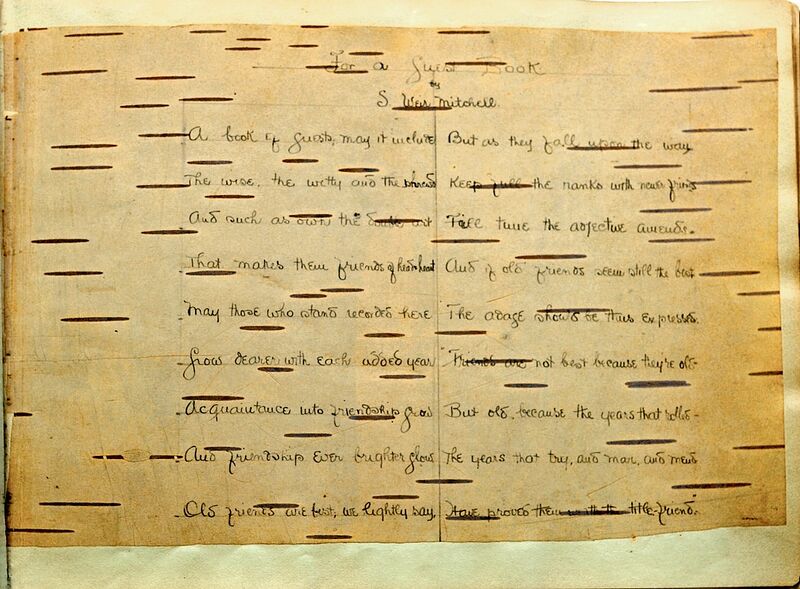 For a Guest Book
by
S. Weir Mitchell.
A book of guests, may it include
The wise, the witty and the shrewd
And such as own the art
That makes them friends of head & heart
May those who stand recorded here
Grow dearer with each added year
Acquaintance into friendship grow
And friendship ever brighter glow
Old friends are best, we lightly say,
But as they fall upon the way
Keep full the ranks with newer friends
Till time the adjective amends.
And if old friends seem still the best
The adage should be thus expressed.
Friends are not best because they're old-
But old, because the years that rolled-
The years that try, and mar, and mend
Have proved them worth the title-friend."